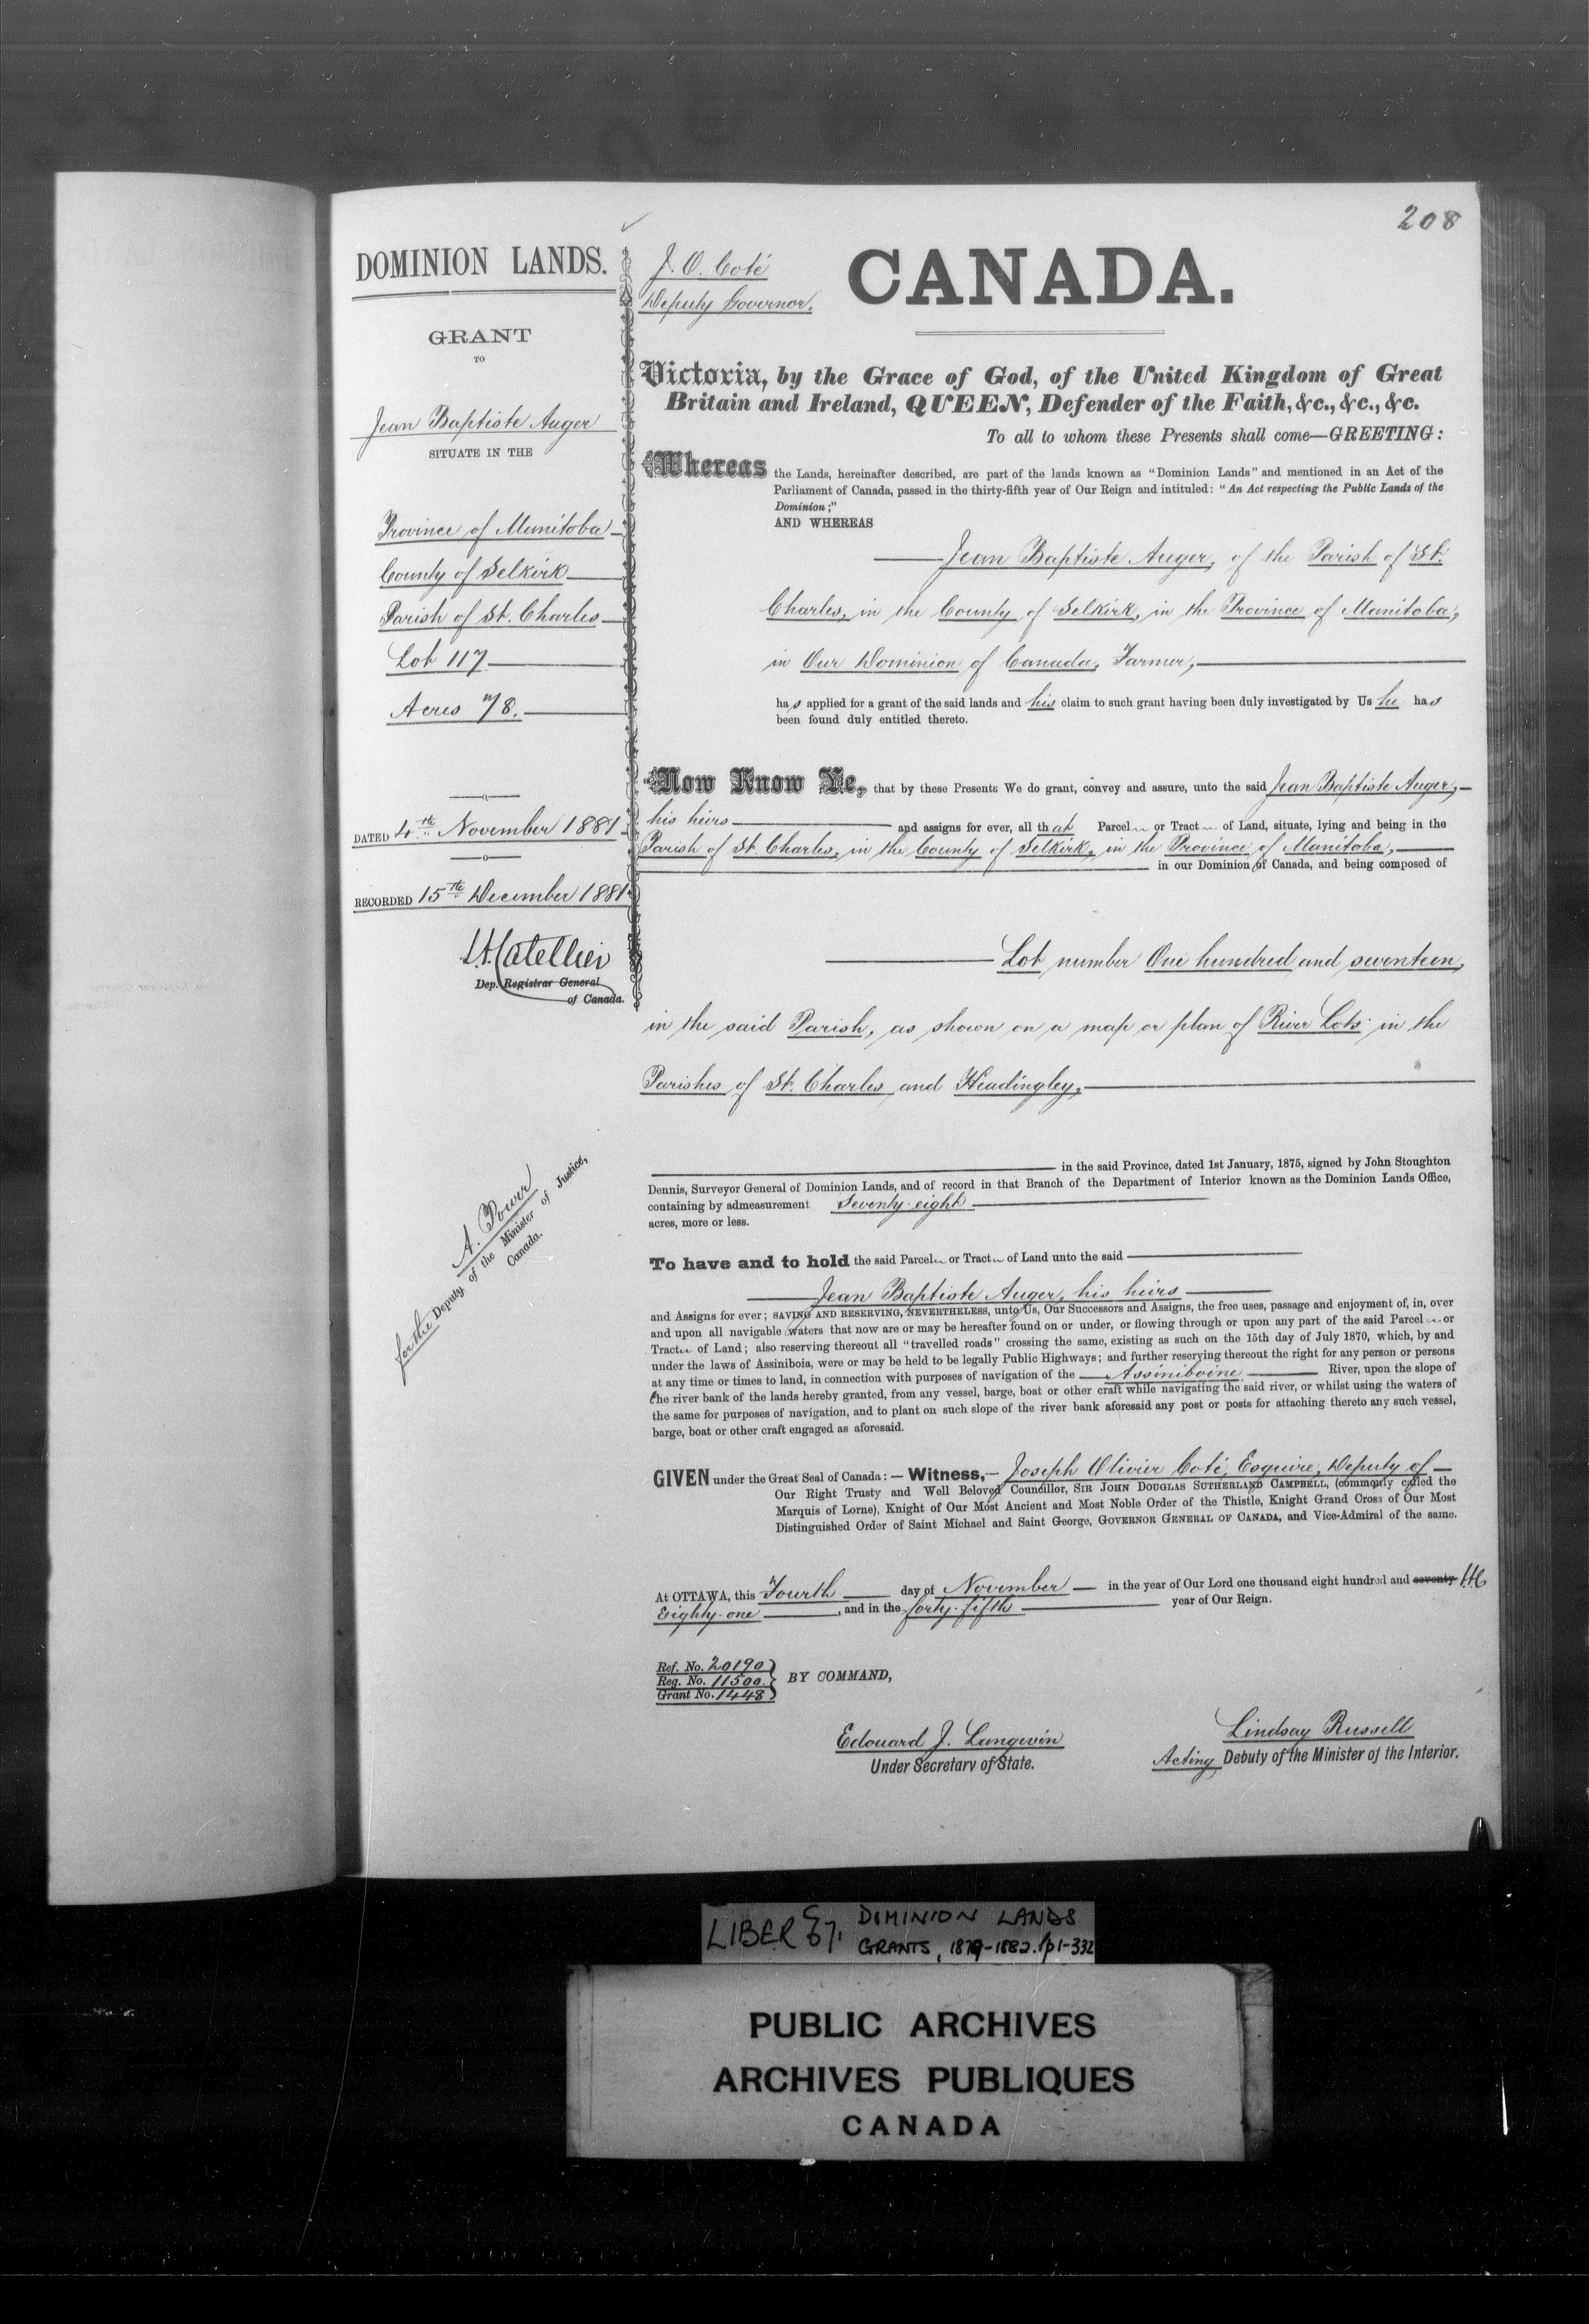 208
DOMINION LANDS.
GRANT
TO
Jean Baptiste Auger
SITUATE IN THE
Province of Manitoba
County of Selkirk
Parish of St. Charles
Lot 117
Acres 78.
DATED 4th November 1881
RECORDED 15th December 1881
L.A. Catellier
Dep. Registrar General
of Canada.
A. Power
for the Deputy of the Minister of Justice,
Canada.
J. O. Coté
Deputy Governor.
CANADA.
Victoria, by the Grace of God, of the United Kingdom of Great
Britain and Ireland, QUEEN, Defender of the Faith, &c., &c., &c.
To all to whom these Presents shall come—GREETING:
Whereas the Lands, hereinafter described, are part of the lands known as "Dominion Lands" and mentioned in an Act of the
Parliament of Canada, passed in the thirty-fifth year of Our Reign and intituled: "An Act respecting the Public Lands of the
Dominion;"
AND WHEREAS
Jean Baptiste Auger, of the Parish of St.
Charles, in the County of Selkirk, in the Province of Manitoba,
in Our Dominion of Canada, Farmer,
has applied for a grant of the said lands and his claim to such grant having been duly investigated by Us he has
been found duly entitled thereto.
Now Know Ye, that by these Presents We do grant, convey and assure, unto the said Jean Baptiste Auger,
his heirs and assigns for ever, all that Parcel or Tract of Land, situate, lying and being in the
Parish of St. Charles, in the County of Selkirk, in the Province of Manitoba,
in our Dominion of Canada, and being composed of
Lot number One hundred and seventeen,
in the said Parish, as shown on a map or plan of River Lots in the
Parishes of St. Charles and Headingley,
in the said Province, dated 1st January, 1875, signed by John Stoughton
Dennis, Surveyor General of Dominion Lands, and of record in that Branch of the Department of Interior known as the Dominion Lands Office,
containing by admeasurement Seventy-eight
acres, more or less.
To have and to hold the said Parcel or Tract of Land unto the said
Jean Baptiste Auger, his heirs
and Assigns for ever; SAVING AND RESERVING, NEVERTHELESS, unto Us, Our Successors and Assigns, the free uses, passage and enjoyment of, in, over
and upon all navigable waters that now are or may be hereafter found on or under, or flowing through or upon any part of the said Parcel or
Tract of Land; also reserving thereout all "travelled roads" crossing the same, existing as such on the 15th day of July 1870, which, by and
under the laws of Assiniboia, were or may be held to be legally Public Highways; and further reserving thereout the right for any person or persons
at any time or times to land, in connection with purposes of navigation of the Assiniboine River, upon the slope of
the river bank of the lands hereby granted, from any vessel, barge, boat or other craft while navigating the said river, or whilst using the waters of
the same for purposes of navigation, and to plant on such slope of the river bank aforesaid any post or posts for attaching thereto any such vessel,
barge, boat or other craft engaged as aforesaid.
GIVEN under the Great Seal of Canada:—Witness,—Joseph Olivier Coté, Esquire, Deputy of
Our Right Trusty and Well Beloved Councillor, SIR JOHN DOUGLAS SUTHERLAND CAMPBELL, (commonly called the
Marquis of Lorne), Knight of Our Most Ancient and Most Noble Order of the Thistle, Knight Grand Cross of Our Most
Distinguished Order of Saint Michael and Saint George, GOVERNOR GENERAL OF CANADA, and Vice-Admiral of the same.
At OTTAWA, this Fourth day of November in the year of Our Lord one thousand eight hundred and seventy
Eighty-one, and in the forty-fifth year of Our Reign.
Ref. No. 20190
Reg. No. 11500
Grant No. 1448
BY COMMAND,
Edouard J. Langevin
Under Secretary of State.
Lindsay Russell
Acting Deputy of the Minister of the Interior.
LIBER 67. DOMINION LANDS
GRANTS, 1879-1882. p1-332
PUBLIC ARCHIVES
ARCHIVES PUBLIQUES
CANADA